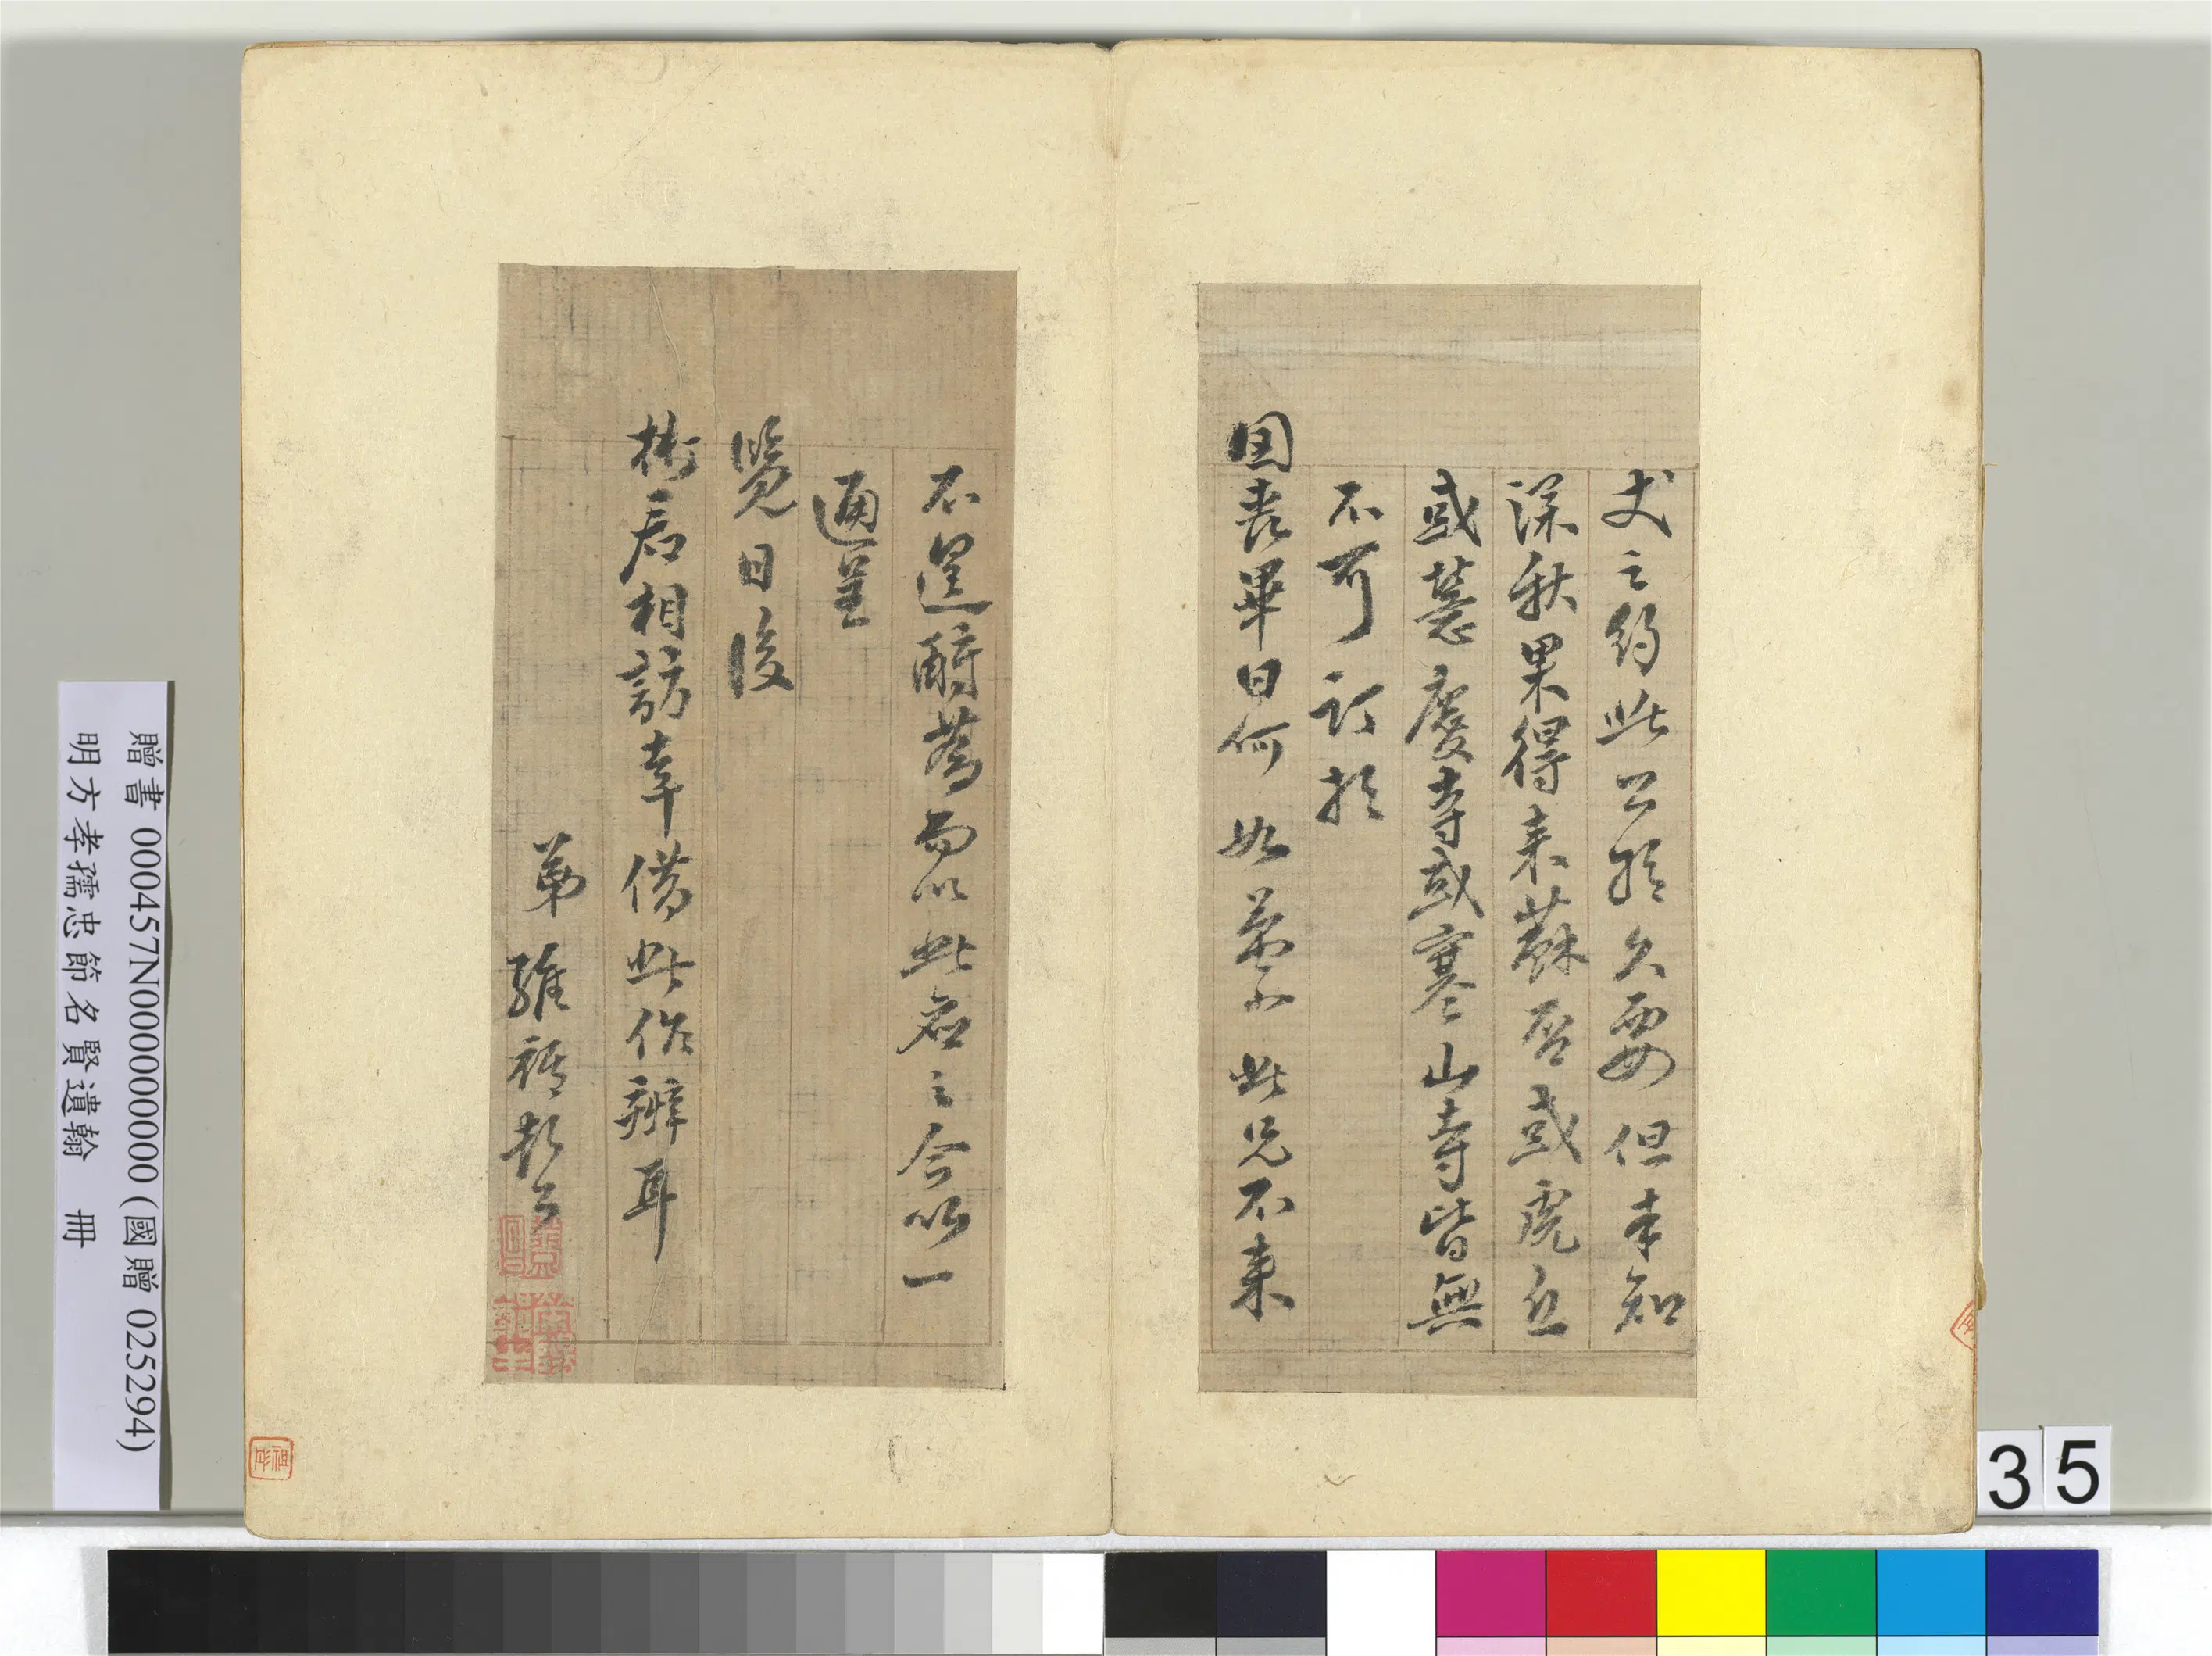 丈之約此公能久要但未知
深秋果得來蘇否或虎丘
或慧慶寺或寒山寺皆無
不可訂於
回喪畢日何如 此兄不來
不遑酧 而以此君之命以一
通呈
覽日後
彬君相訪幸借此作辨耳
弟維祺
35
贈書 000457N000000000 (國贈 025294)
明方孝孺忠節名賢遺翰 冊